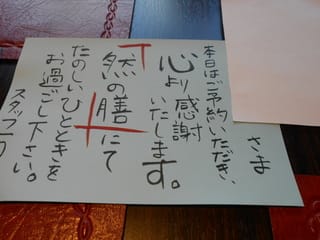 さま
本日はご予約いただき、
心より感謝
いたします。
然の膳にて
たのしいひとときを
お過ごし下さい。
スタッフ